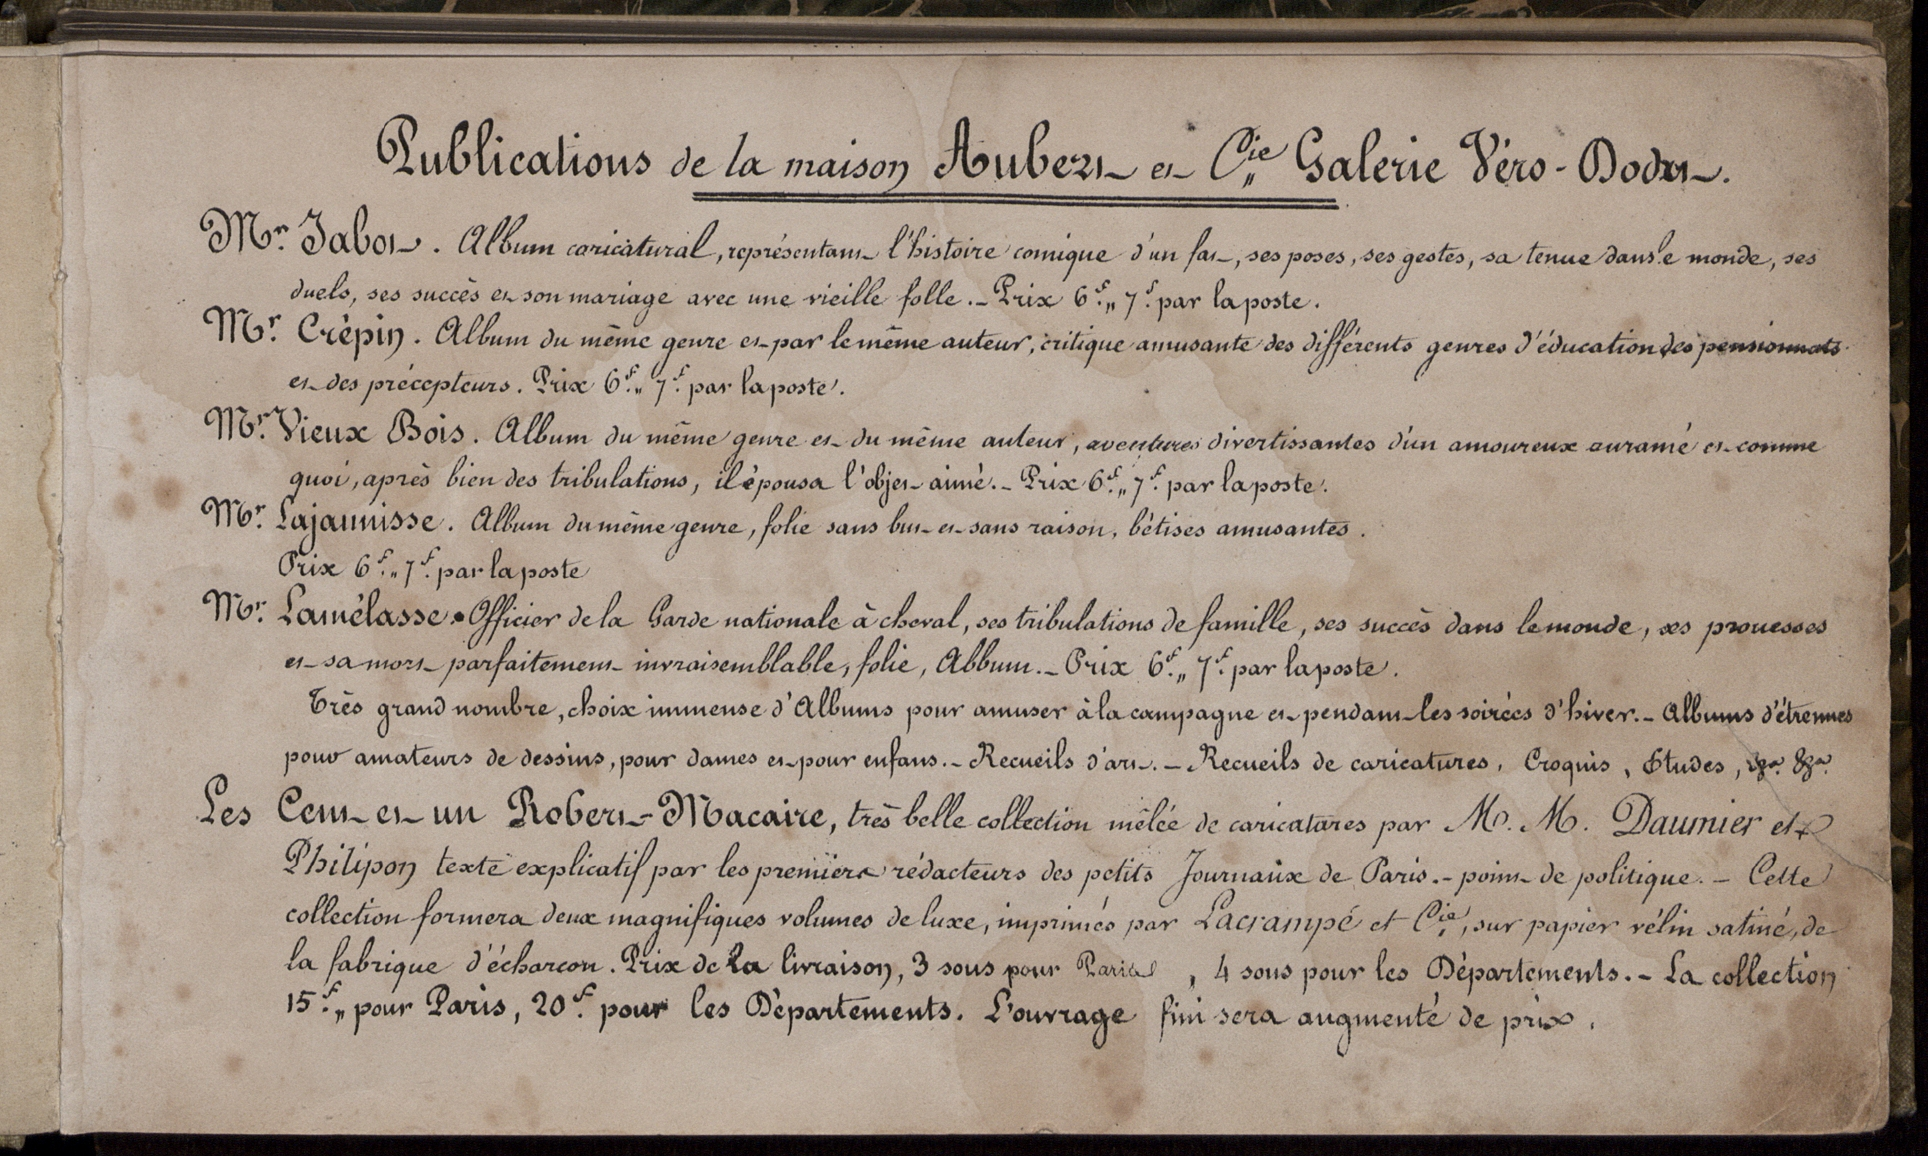 Publications de la maison Aubert et Cie. Galerie Véro-Dodat.
Mr. Jabot. Album caricatural, représentant l'histoire comique d'un fat, ses poses, ses gestes, sa tenue dans le monde, ses
duels, ses succès et son mariage avec une vieille folle. - Prix 6f. " 7f. par la poste.
Mr. Crépin. Album du même genre et par le même auteur, critique amusante des différents genres d'éducation des pensionnats
et des précepteurs. Prix 6f. " 7f. par la poste.
Mr. Vieux Bois. Album du même genre et du même auteur, aventures divertissantes d'un amoureux suranné et comme
quoi, après bien des tribulations, il épousa l'objet aimé. - Prix 6f. " 7f. par la poste.
Mr. Lajaunisse. Album du même genre, folie sans but et sans raison, bêtises amusantes.
Prix 6f. " 7f. par la poste
Mr. Lamélasse. Officier de la Garde nationale à cheval, ses tribulations de famille, ses succès dans le monde, ses prouesses
et sa mort parfaitement invraisemblable, folie, Album. - Prix 6f. " 7f. par la poste.
Très grand nombre, choix immense d'Albums pour amuser à la campagne et pendant les soirées d'hiver. - Albums d'étrennes
pour amateurs de dessins, pour dames et pour enfans. - Recueils d'art. - Recueils de caricatures, Croquis, Etudes, &a. &a.
Les Cent et un Robert-Macaire, très belle collection mêlée de caricatures par M. M. Daumier et
Philipon texte explicatif par les premiers rédacteurs des petits Journaux de Paris. - point de politique. - Cette
collection formera deux magnifiques volumes de luxe, imprimés par Lacrampe et Cie., sur papier vélin satiné, de
la fabrique d'écharcon. Prix de la livraison, 3 sous pour Paris, 4 sous pour les Départements. - La collection
15f. " pour Paris, 20f. pour les Départements. L'ouvrage fini sera augmenté de prix.